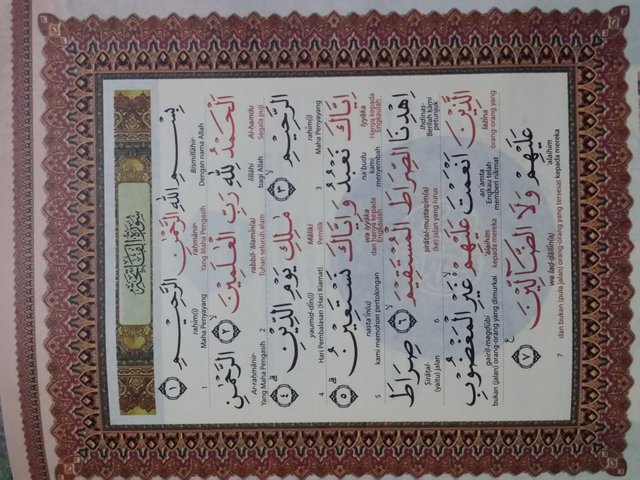 سُوْرَةُ الْفَاتِحَةِ
بِسْمِ اللّٰهِ الرَّحْمٰنِ الرَّحِيْمِ ١
Bismillāhir- raḥmānir- raḥīm(i)
Dengan nama Allah Yang Maha Pengasih Maha Penyayang 1
اَلْحَمْدُ لِلّٰهِ رَبِّ الْعٰلَمِيْنَۙ ٢ الرَّحْمٰنِ
Al-ḥamdu lillāhi rabbil-‘ālamīn(a) Ar-raḥmānir-
Segala puji bagi Allah Tuhan seluruh alam 2 Yang Maha Pengasih
الرَّحِيْمِۙ ٣ مٰلِكِ يَوْمِ الدِّيْنِۗ ٤
raḥīm(i) Māliki yaumid-dīn(i)
Maha Penyayang 3 Pemilik Hari Pembalasan (Hari Kiamat) 4
اِيَّاكَ نَعْبُدُ وَاِيَّاكَ نَسْتَعِيْنُۗ ٥
Iyyāka na‘budu wa iyyāka nasta‘īn(u)
Hanya kepada Engkaulah kami menyembah dan hanya kepada Engkaulah kami memohon pertolongan 5
اِهْدِنَا الصِّرَاطَ الْمُسْتَقِيْمَۙ ٦ صِرَاطَ
Ihdinaṣ- ṣirāṭal-mustaqīm(a) Ṣirāṭal-
Berilah kami petunjuk (ke) jalan yang lurus 6 (yaitu) jalan
الَّذِيْنَ اَنْعَمْتَ عَلَيْهِمْ ەۙ غَيْرِ الْمَغْضُوْبِ
lażīna an‘amta ‘alaihim gairil-magḍūbi
orang-orang yang Engkau telah memberi nikmat kepada mereka bukan (jalan) orang-orang yang dimurkai
عَلَيْهِمْ وَلَا الضَّاۤلِّيْنَ ࣖ ٧
‘alaihim wa laḍ-ḍāllīn(a)
kepada mereka dan bukan (pula jalan) orang-orang yang tersesat 7